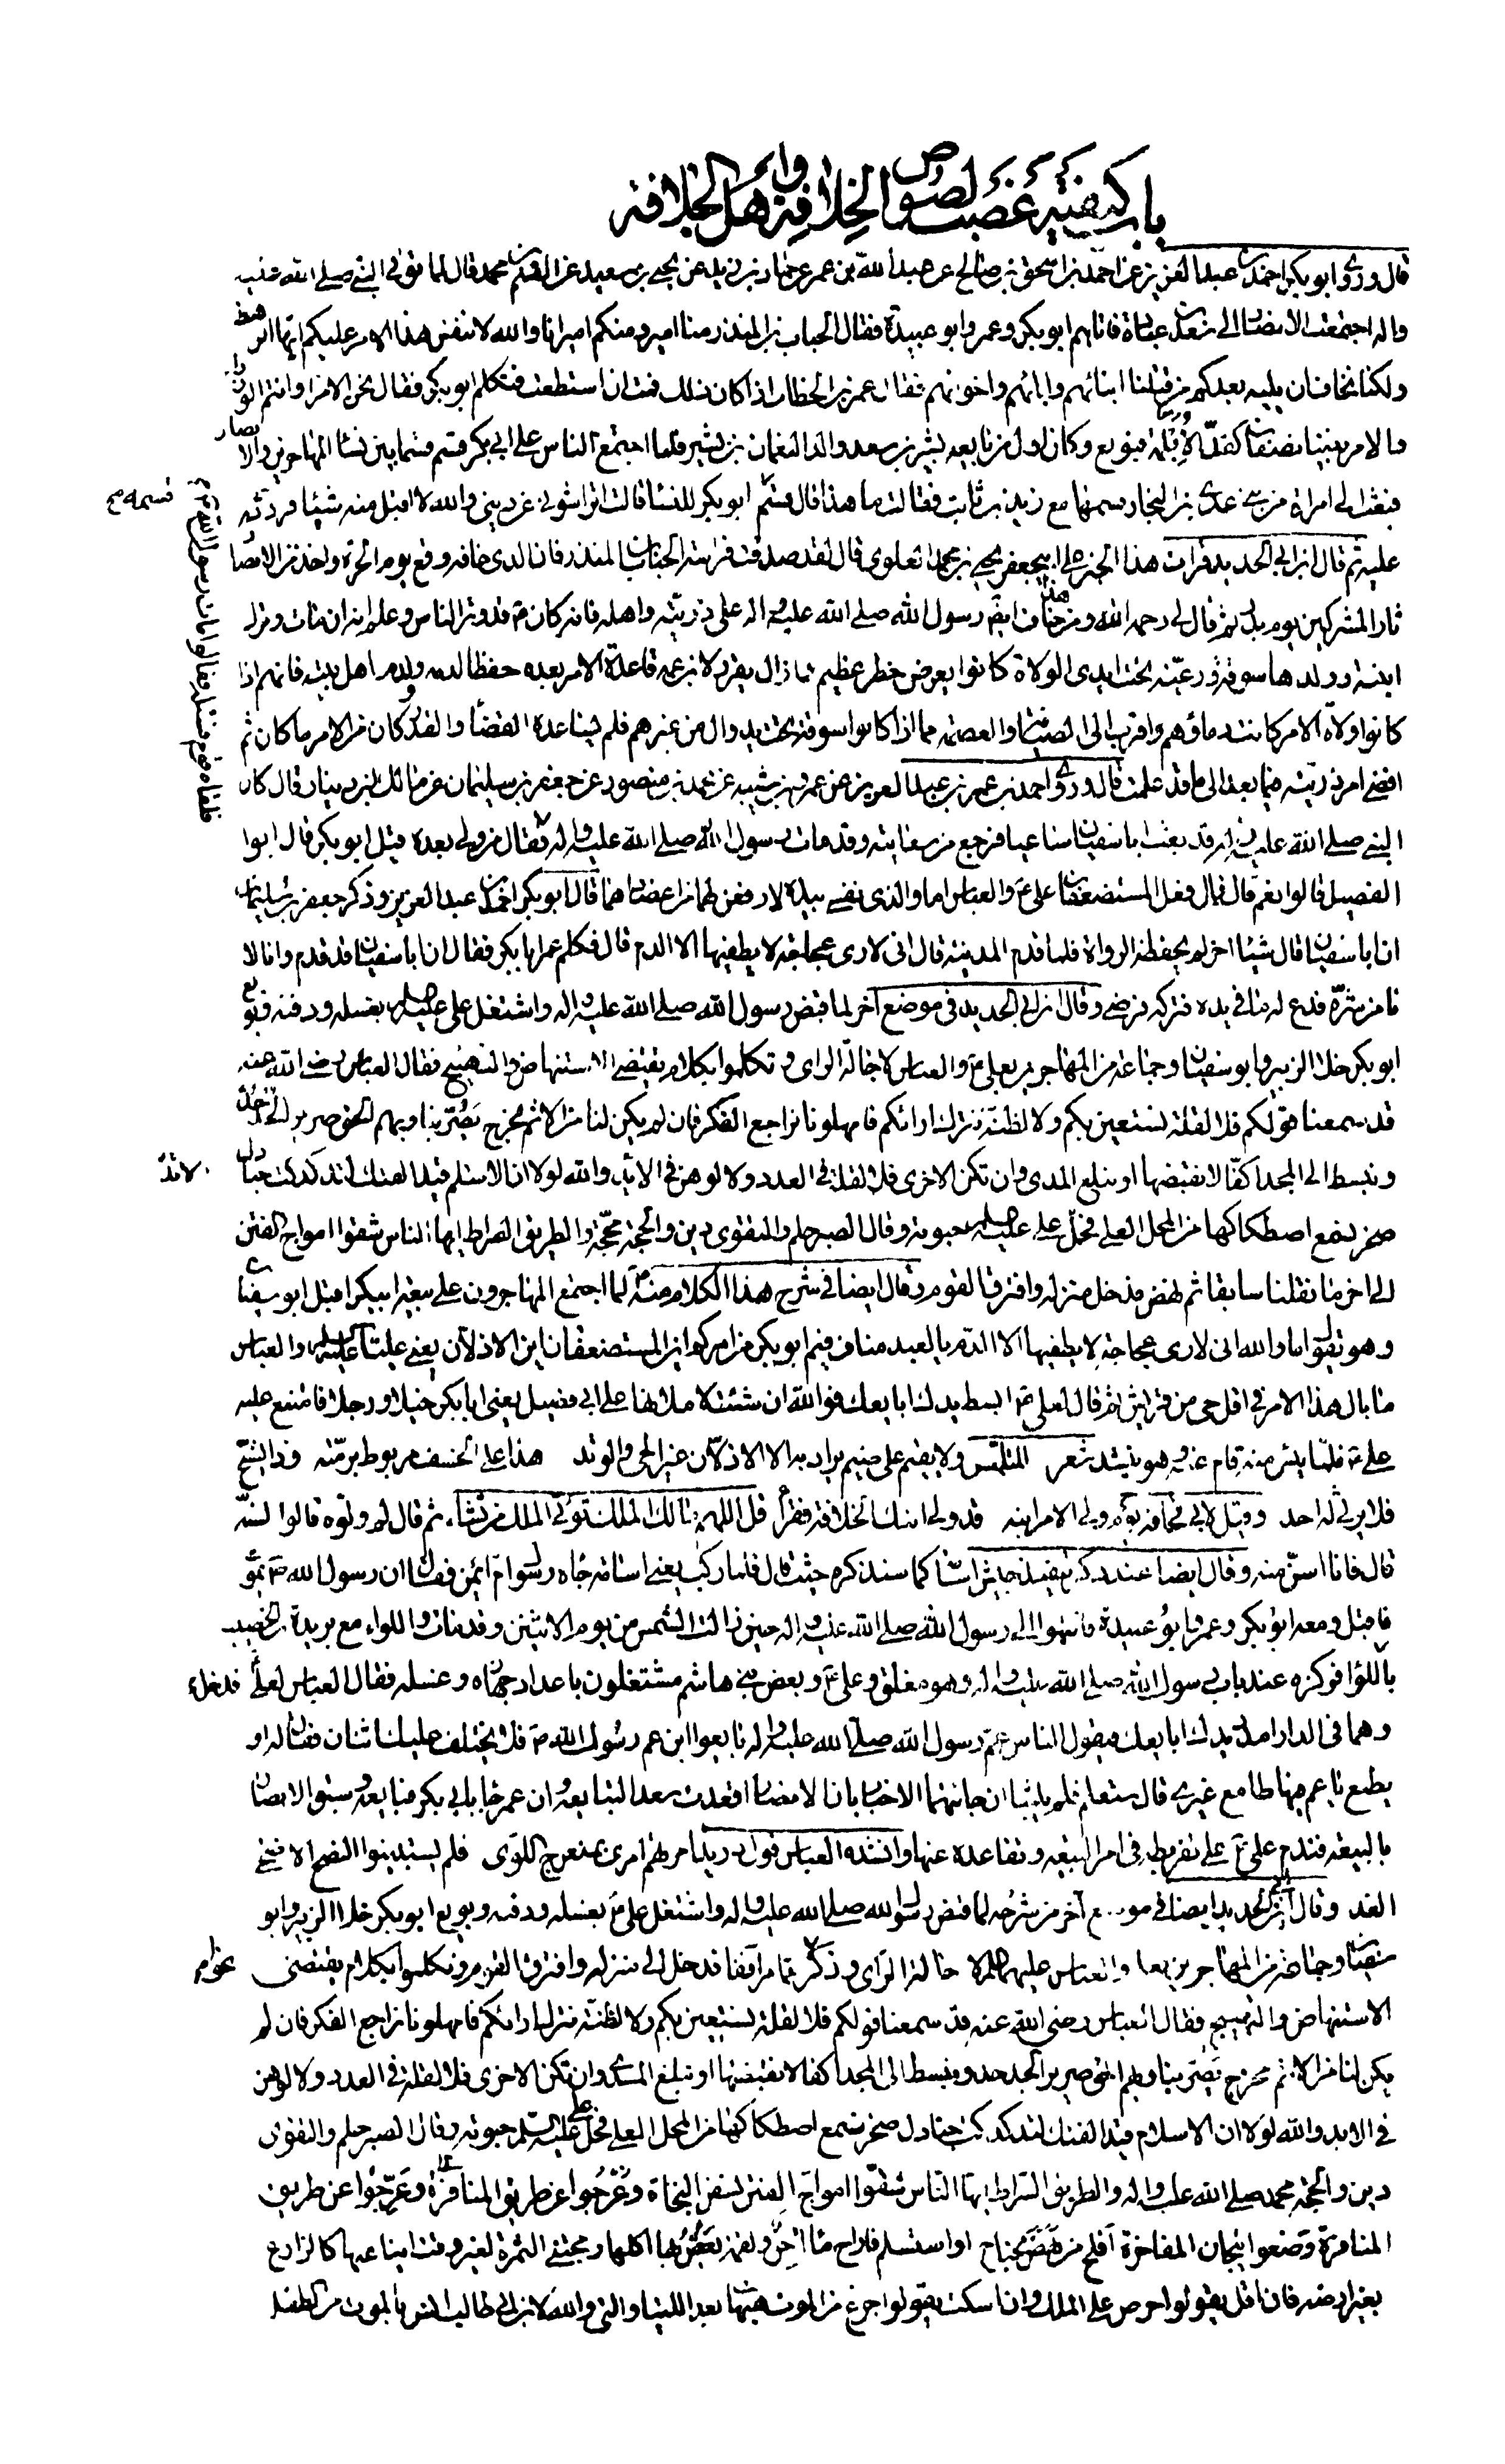 باب كيفية غصب لصوص الخلافة وأهل الجلافة
قال وروى ابو بكر احمد بن عبد العزيز عن احمد بن اسحق بن صالح عن عبد الله بن عمر عن حماد بن زيد عن يحيى بن سعيد عن القسم بن محمد قال لما توفى النبي صلى الله عليه
واله اجتمعت الانصار الى سعد بن عبادة فاتاهم ابو بكر وعمر وابو عبيدة فقال الحباب بن المنذر منا امير ومنكم امير انا والله لا ننفس هذا الامر عليكم ايها الرهط
ولكنا نخاف ان يليه بعدكم من قتلنا ابنائهم وابائهم واخوانهم فقال عمر بن الخطاب اذا كان ذلك فمت ان استطعت فتكلم ابو بكر فقال نحن الامراء وانتم الوزراء
والامر بيننا نصفان كقد الابلمة فبويع وكان اول من بايعه بشير بن سعد والد النعمان بن بشير فلما اجتمع الناس على ابي بكر قسم قسما بين نساء المهاجرين والانصار
فبعث الى امراة من بني عدي بن النجار قسمها مع زيد بن ثابت فقالت ما هذا قال قسم قسمه ابو بكر للنساء قالت اتراشوني عن ديني والله لا اقبل منه شيئا فردته
عليه ثم قال ابن ابي الحديد قرات هذا الخبر على ابي جعفر يحيى بن محمد العلوي قال لقد صدقت فراسة الحباب بن المنذر فان الذى خافه وقع يوم الحرة واخذ من الانصار
ثار المشركين يوم بدر ثم قال لي رحمه الله ومن هذا خاف ايضا رسول الله صلى الله عليه واله على ذريته واهله فانه كان ع قد وتر الناس وعلم انه ان مات وترك
ابنته وولدها سوقة ورعية تحت ايدى الولاة كانوا بعرض خطر عظيم فما زال يقرر لابن عمه قاعدة الامر بعده حفظا لدمه ودماء اهل بيته فانهم اذا
كانوا ولاة الامر كانت دماؤهم واقرب الى الصيانة والعصمة مما اذا كانوا سوقة تحت يد وال من غيرهم فلم يساعده القضاء والقدر وكان من الامر ما كان ثم
افضى امر ذريته فيما بعد الى ما قد علمت قال وروى احمد بن عبد العزيز عن عمر بن شبه عن محمد بن منصور عن جعفر بن سليمان عن مالك بن دينار قال كان
النبي صلى الله عليه واله قد بعث ابا سفيان ساعيا فرجع من سعايته وقد مات رسول الله صلى الله عليه واله فقال من ولى بعده قيل ابو بكر قال ابو
الفصيل قالوا نعم قال فما فعل المستضعفان على ع والعباس اما والذى نفسي بيده لارفعن لهما من اعضادهما قال ابو بكر احمد بن عبد العزيز وذكر جعفر بن سليمان
ان ابا سفيان قال شيئا اخر لم يحفظه الرواة فلما قدم المدينة قال اني لارى عجاجة لا يطفيها الا الدم قال فكلم عمر ابا بكر فقال ان ابا سفيان قد قدم وانا لا
نامن شره فدع له ما في يده فتركه فرضى وقال ابن ابي الحديد في موضع آخر لما قبض رسول الله صلى الله عليه واله واشتغل على عليه السلم بغسله ودفنه وبويع
ابو بكر خلا الزبير وابو سفيان وجماعة من المهاجرين بعلي ع والعباس لاجالة الراى وتكلموا بكلام يقتضى الاستنهاض والتهييج فقال العباس رضى الله عنه
قد سمعنا قولكم فلا لقلة نستعين بكم ولا لظنة نترك ارائكم فامهلونا نراجع الفكر فان يكن لنا من الاثم مخرج يصر بنا وبهم الحق صرير الجدجد
ونبسط الى المجد اكفا لا نقبضها او نبلغ المدى وان تكن الاخرى فلا لقلة في العدد ولا لوهن في الايد والله لولا ان الاسلام قيد الفتك لتدكدكت جنادل
صخر يسمع اصطكاكها من المحل العلى فحل على عليه السلم حبوته وقال الصبر حلم والتقوى دين والحجة محجة والطريق الصراط ايها الناس شقوا امواج الفتن
الى اخر ما نقلنا سابقا ثم نهض فدخل منزله وافترق القوم وقال ايضا في شرح هذا الكلام منه لما اجتمع المهاجرون على بيعة ابي بكر اقبل ابو سفيان
وهو يقول اما والله اني لارى عجاجة لا يطفيها الا الدم يا لعبد مناف فيم ابو بكر من امركم اين المستضعفان اين الاذلان يعنى عليا عليه السلم والعباس
ما بال هذا الامر في اقل حى من قريش ثم قال لعلى ع ابسط يدك ابايعك فوالله ان شئت لاملانها على ابي فصيل يعنى ابا بكر خيلا ورجلا فامتنع عليه
على ع فلما يئس منه قام عنه وهو ينشد شعر المتلمس ولا يقيم على ضيم يراد به الا الاذلان عير الحى والوتد هذا على الخسف مربوط برمته وذا يشج
فلا يرثى له احد وقيل لابي قحافة يوم ولى الامر ابنه قد ولى ابنك الخلافة فقرأ قل اللهم مالك الملك تؤتى الملك من تشاء ثم قال لم ولوه قالوا لسنه
قال فانا اسن منه وقال ايضا عند ذكر تنفيذ جيش اسامة كما سنذكره حيث قال فلما ركب يعنى اسامة جاءه رسول ام ايمن فقال ان رسول الله ص يموت
فاقبل ومعه ابو بكر وعمر وابو عبيدة فانتهوا الى رسول الله صلى الله عليه واله حين زالت الشمس من يوم الاثنين وقد مات واللواء مع بريدة بن الخصيب
باللواء فركزه عند باب رسول الله صلى الله عليه واله وهو مغلق وعلى ع وبعض بني هاشم مشتغلون باعداد جهازه وغسله فقال العباس لعلى فدخل
وهما في الدار امدد يدك ابايعك فيقول الناس عم رسول الله صلى الله عليه واله بايع ابن عم رسول الله ص فلا يختلف عليك اثنان فقال له او
يطمع يا عم فيها طامع غيرى قال ستعلم فلم يلبثا ان جائتهما الاخبار بان الانصار اقعدت سعدا لتبايعه وان عمر جاء بابي بكر فبايعه وسبق الانصار
بالبيعة فندم على ع على تفريطه في امر البيعة وتقاعده عنها وانشده العباس قول دريد امرتهم امرى بمنعرج اللوى فلم يستبينوا النصح الا ضحى
الغد وقال ابن ابي الحديد ايضا في موضع آخر من شرحه لما قبض رسول الله صلى الله عليه واله واشتغل على ع بغسله ودفنه وبويع ابو بكر خلا الزبير وابو
سفيان وجماعة من المهاجرين بعلي والعباس عليهما السلم لاجالة الراى وذكر نحوا مما مر آنفا قد دخل الى منزله وافترق القوم وتكلموا بكلام يقتضى
الاستنهاض والتهييج فقال العباس رضى الله عنه قد سمعنا قولكم فلا لقلة نستعين بكم ولا لظنة نترك ارائكم فامهلونا نراجع الفكر فان لم
يكن لنا من الاثم مخرج يصر بنا وبهم الحق صرير الجدجد ونبسط الى المجد اكفا لا نقبضها او نبلغ المدى وان تكن الاخرى فلا لقلة في العدد ولا لوهن
في الايد والله لولا ان الاسلام قيد الفتك لتدكدكت جنادل صخر يسمع اصطكاكها من المحل العلى فحل على عليه السلم حبوته وقال الصبر حلم والتقوى
دين والحجة محمد صلى الله عليه واله والطريق الصراط ايها الناس شقوا امواج الفتن بسفن النجاة وعرجوا عن طريق المنافرة وعرجوا عن طريق
المنافرة وضعوا تيجان المفاخرة افلح من نهض بجناح او استسلم فاراح ماء آجن ولقمة يغص بها اكلها ومجتنى الثمرة لغير وقت ايناعها كالزارع
بغير ارضه فان اقل يقولوا حرص على الملك وان اسكت يقولوا جزع من الموت هيهات بعد اللتيا والتى والله لابن ابي طالب انس بالموت من الطفل